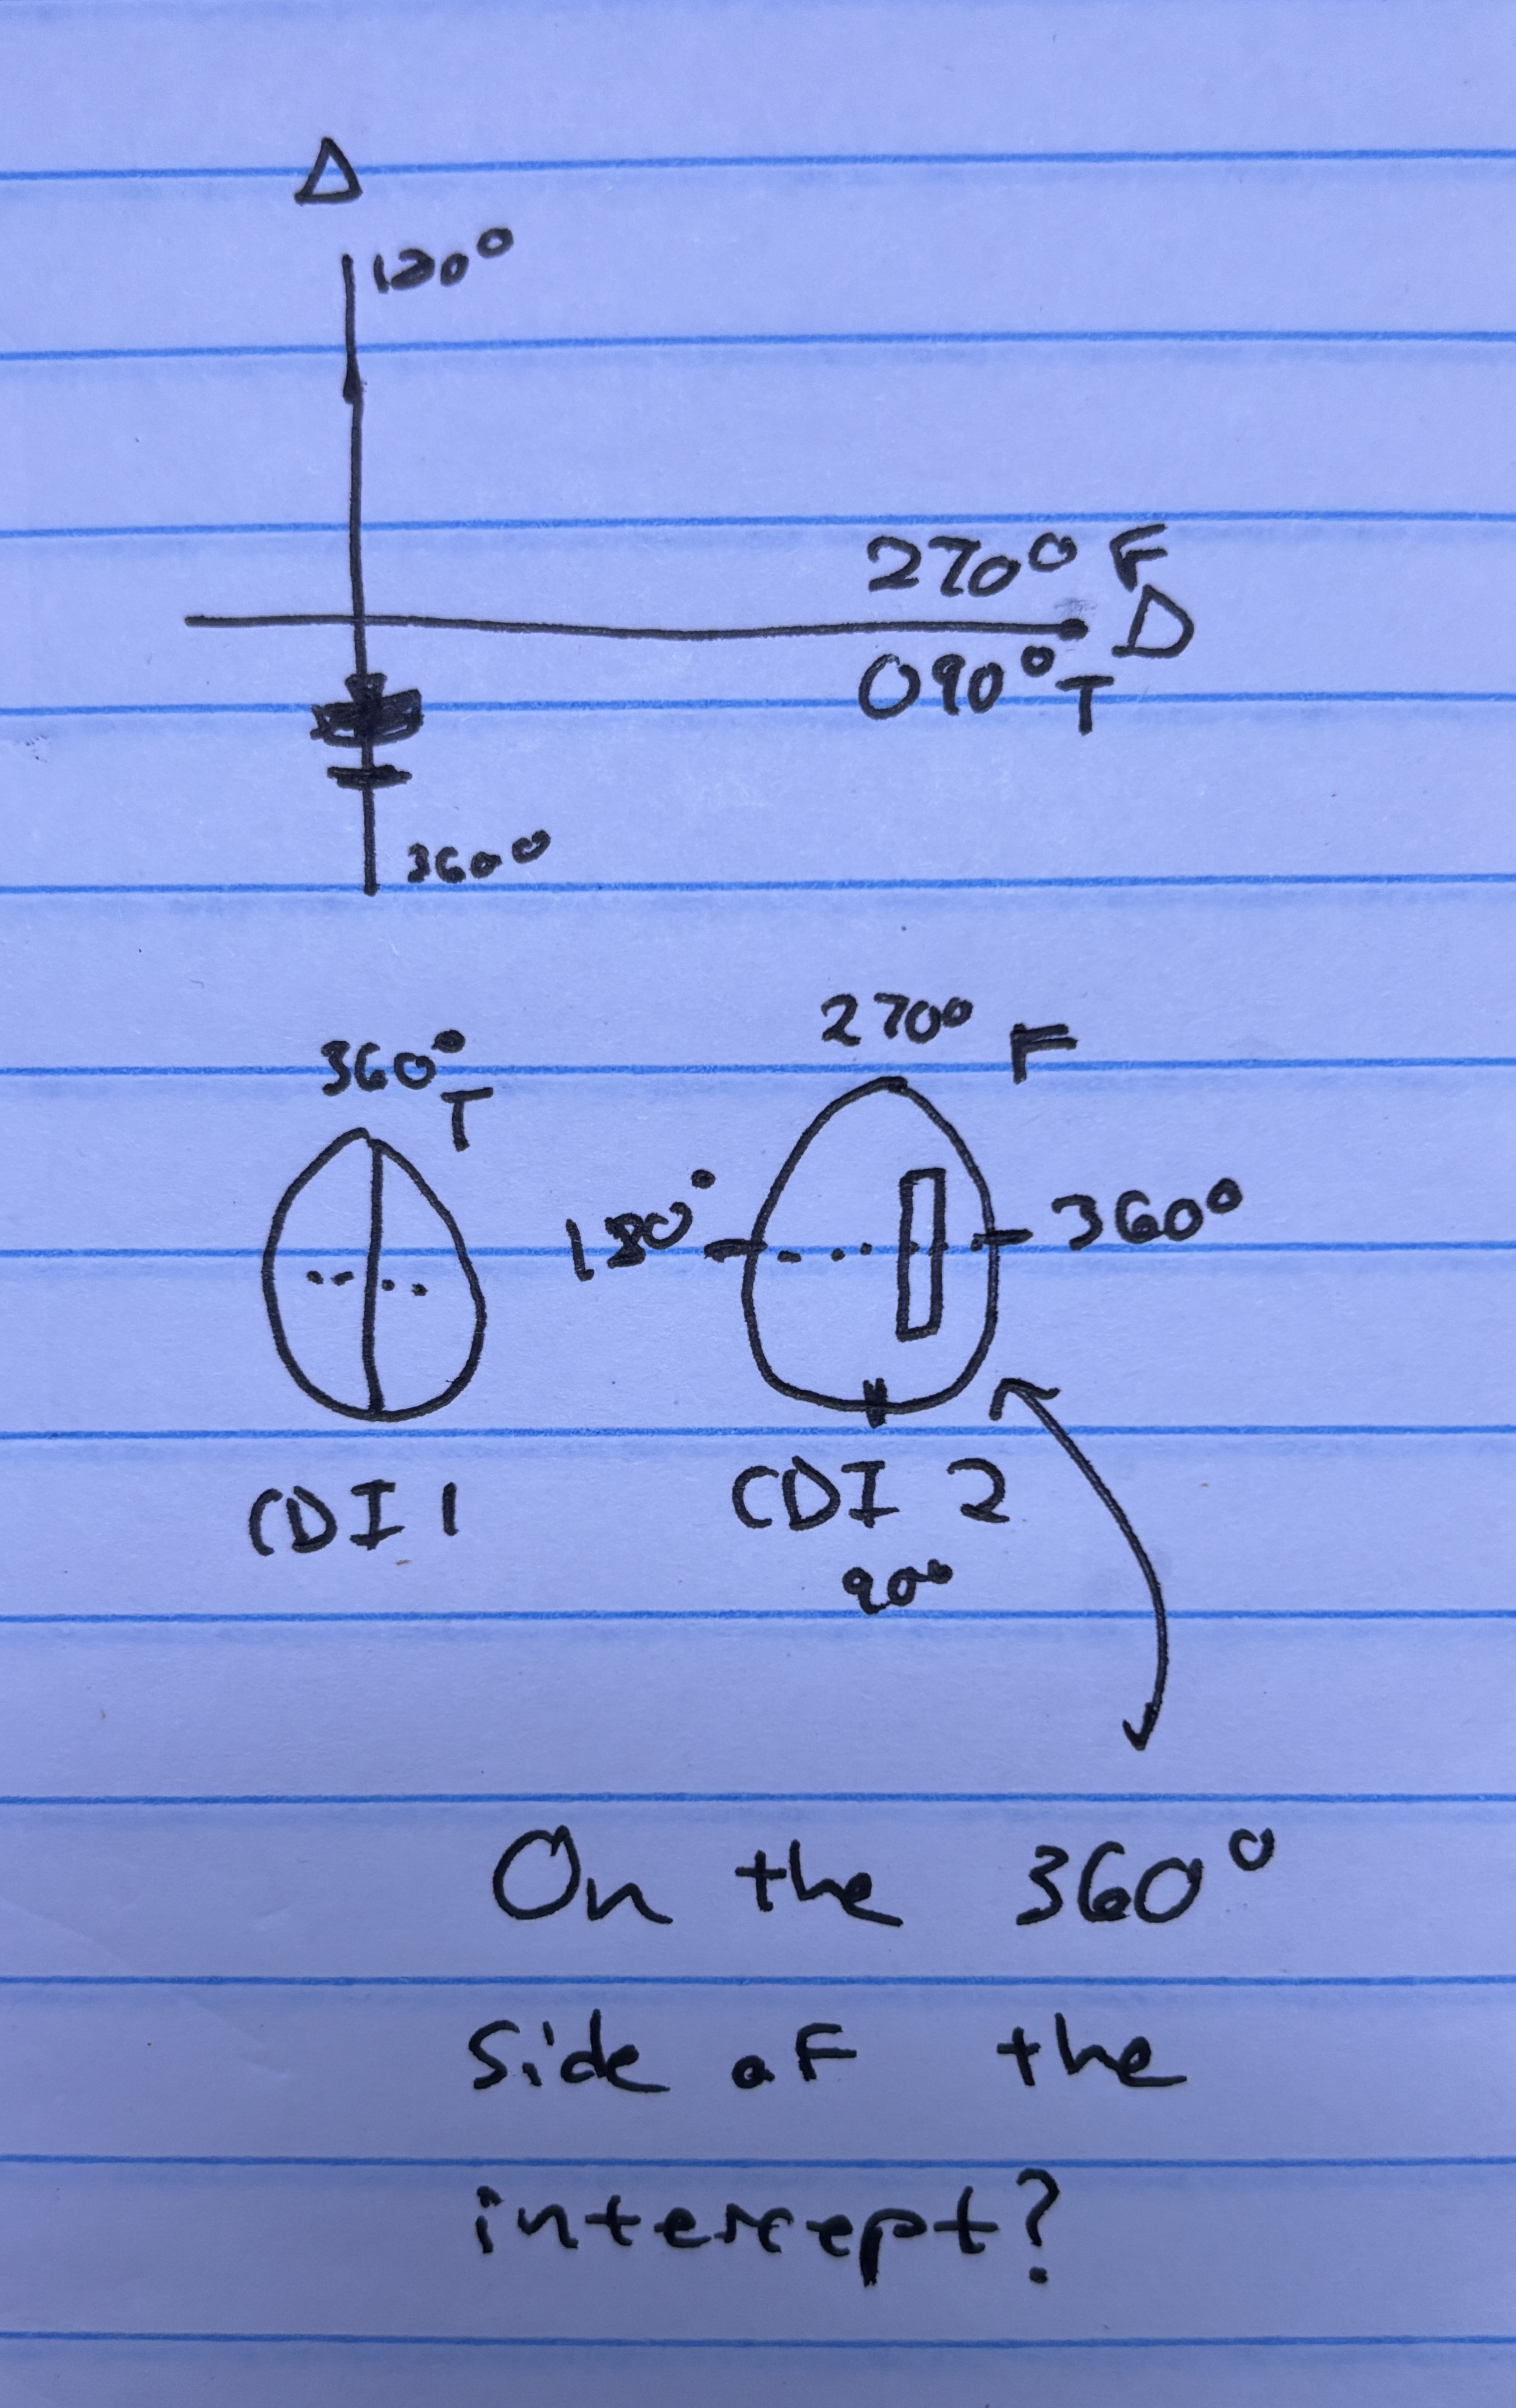 180°
270° F
090° T
360°
270° F
360° T
180° 360°
CDI 1 CDI 2
90°
On the 360°
side of the
intercept?